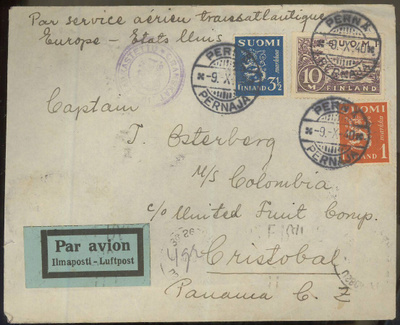 Par service aérien transatlantique
Europe - Etats Unis
PERNÅ
-9.X
PERNAJA
SUOMI
markkaa
3½
FINLAND
10 M
FINLAND
PERNÅ
-9.X
PERNAJA
SUOMI
markka
FINLAND 1
Captain
T. Osterberg
M/S Colombia
c/o United Fruit Comp.
Cristobal
Panama C. Z
Par avion
Ilmaposti - Luftpost